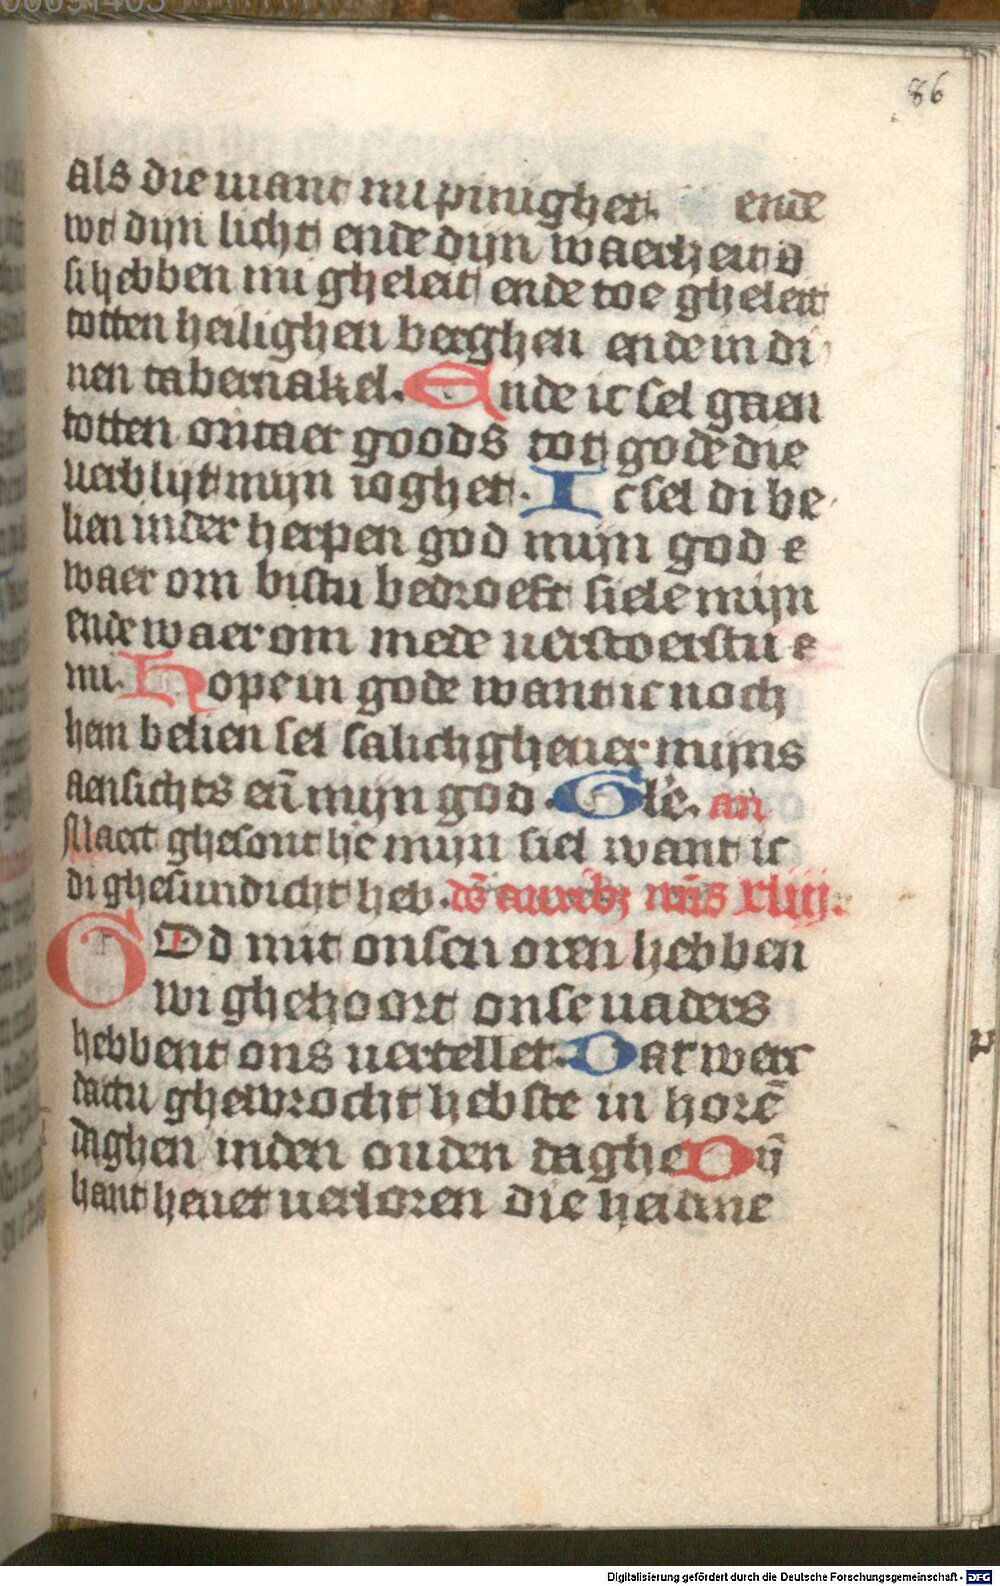 86
als die viant mi pinighet. ende
wt dijn licht ende dijn waerheit
si hebben mi gheleit ende toe gheleit
totten heilighen berghen ende in di
nen tabernakel. Ende ic sel gaen
totten outaer goods tot gode die
verblijt mijn ioghet. Ic sel di be
lien in der herpen god mijn god
waer om bistu bedroeft siele mijn
ende waer om mede verstoerstu
mi. Hope in gode want ic noch
hem belien sel salich ghever mijns
aensichts eñ mijn god. Glẽ. an
Maect ghesont he mijn siel want ic
di ghesundicht heb. dẽ auribꝫ nr̃is xliij.
God mit onsen oren hebben
wi ghehoort onse vaders
hebbent ons vertellet. Dat werc
dattu ghewrocht hebste in horẽ
daghen inden ouden daghe Dijn̄
hant hevet verloren die heidine
Digitalisierung gefördert durch die Deutsche Forschungsgemeinschaft - DFG